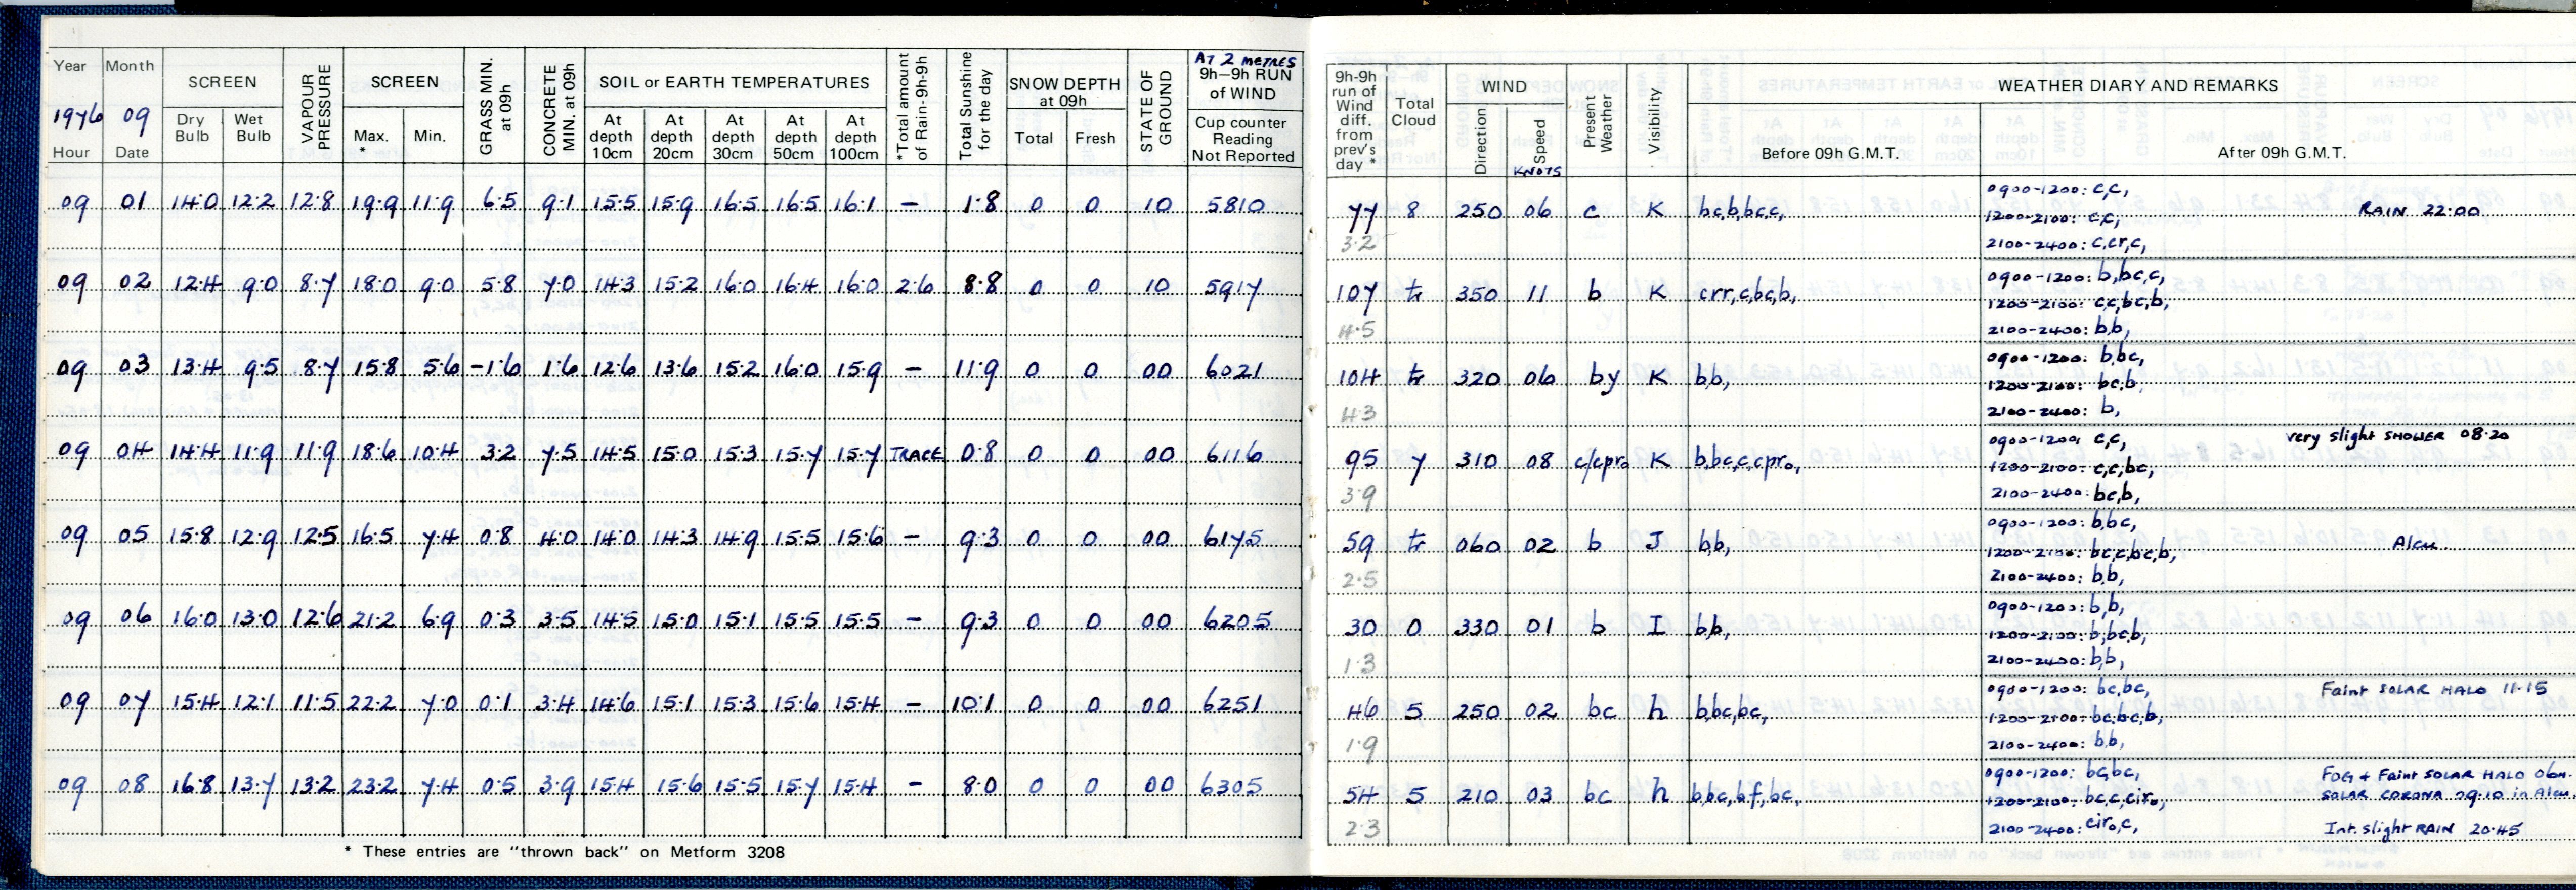 Year Month SCREEN VAPOUR PRESSURE SCREEN GRASS MIN. at 09h CONCRETE MIN. at 09h SOIL or EARTH TEMPERATURES *Total amount of Rain-9h-9h Total Sunshine for the day SNOW DEPTH at 09h STATE OF GROUND AT 2 METRES 9h–9h RUN of WIND
1976 09 Dry Bulb Wet Bulb Max. * Min. At depth 10cm At depth 20cm At depth 30cm At depth 50cm At depth 100cm Total Fresh Cup counter Reading Not Reported
Hour Date
09 01 14·0 12·2 12·8 19·9 11·9 6·5 9·1 15·5 15·9 16·5 16·5 16·1 – 1·8 0 0 10 5810
09 02 12·4 9·0 8·7 18·0 9·0 5·8 7·0 14·3 15·2 16·0 16·4 16·0 2·6 8·8 0 0 10 5917
09 03 13·4 9·5 8·7 15·8 5·6 –1·6 1·6 12·6 13·6 15·2 16·0 15·9 – 11·9 0 0 00 6021
09 04 14·4 11·9 11·9 18·6 10·4 3·2 7·5 14·5 15·0 15·3 15·7 15·7 TRACE 0·8 0 0 00 6116
09 05 15·8 12·9 12·5 16·5 7·4 0·8 4·0 14·0 14·3 14·9 15·5 15·6 – 9·3 0 0 00 6175
09 06 16·0 13·0 12·6 21·2 6·9 0·3 3·5 14·5 15·0 15·1 15·5 15·5 – 9·3 0 0 00 6205
09 07 15·4 12·1 11·5 22·2 7·0 0·1 3·4 14·6 15·1 15·3 15·6 15·4 – 10·1 0 0 00 6251
09 08 16·8 13·7 13·2 23·2 7·4 0·5 3·9 15·4 15·6 15·5 15·7 15·4 – 8·0 0 0 00 6305
* These entries are "thrown back" on Metform 3208
9h-9h run of Wind diff. from prev's day * Total Cloud WIND Direction Speed KNOTS Present Weather Visibility WEATHER DIARY AND REMARKS
Before 09h G.M.T. After 09h G.M.T.
0900-1200: c,c,
77 8 250 06 c K bc,b,bc,c, 1200-2100: c,c, RAIN 22·00
3·2 2100-2400: c,cr,c,
0900-1200: b,bc,c,
107 tr 350 11 b K crr,c,bc,b, 1200-2100: c,c,bc,b,
4·5 2100-2400: b,b,
0900-1200: b,bc,
104 tr 320 06 by K b,b, 1200-2100: bc,b,
4·3 2100-2400: b,
0900-1200: c,c, very slight SHOWER 08·20
95 7 310 08 c/cpro K b,bc,c,cpro, 1200-2100: c,c,bc,
3·9 2100-2400: bc,b,
0900-1200: b,bc,
59 tr 060 02 b J b,b, 1200-2100: bc,c,bc,b, Alcu.
2·5 2100-2400: b,b,
0900-1200: b,b,
30 0 330 01 b I b,b, 1200-2100: b,bc,b,
1·3 2100-2400: b,b,
0900-1200: bc,bc, Faint SOLAR HALO 11·15
46 5 250 02 bc h b,bc,bc, 1200-2100: bc,bc,b,
1·9 2100-2400: b,b,
0900-1200: bc,bc, FOG + Faint SOLAR HALO 06H.
54 5 210 03 bc h b,bc,bf,bc, 1200-2100: bc,c,ciro, SOLAR CORONA 09·10 in Alcu.
2·3 2100-2400: ciro,c, Int. slight RAIN 20·45